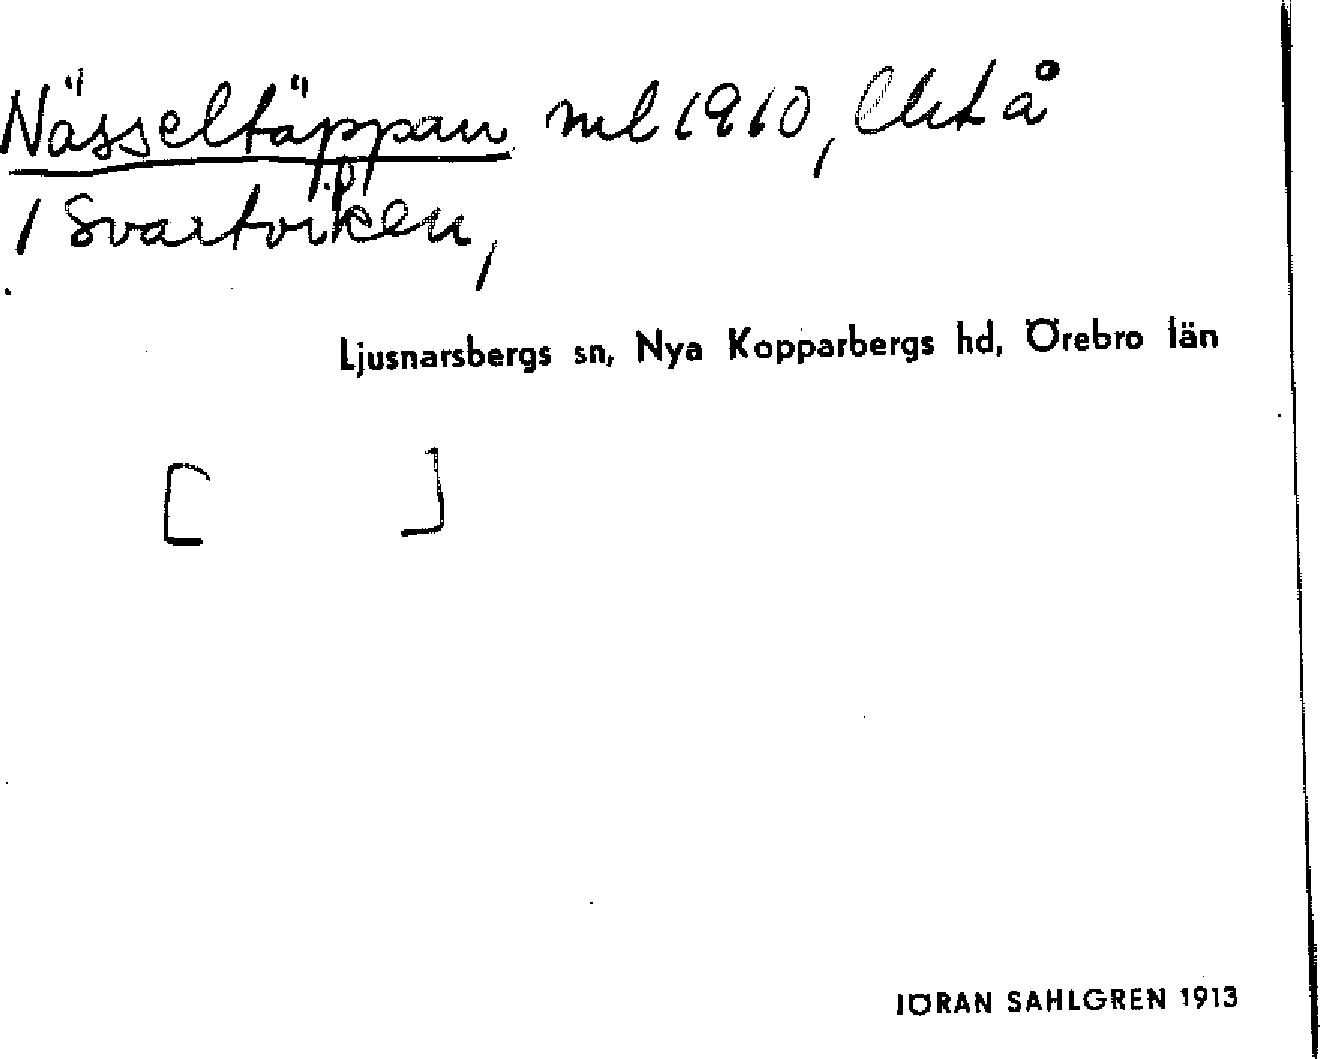 Nässeltäppan ml 1910,
/ Svartviken,
Ljusnarsbergs sn, Nya Kopparbergs hd, Örebro län
[ ]
JÖRAN SAHLGREN 1913